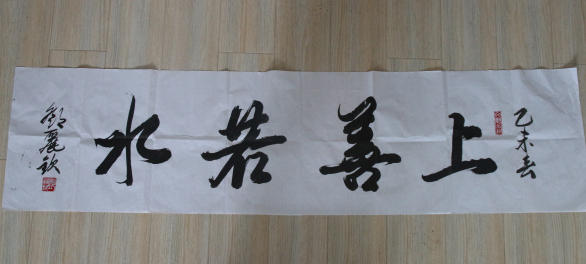 乙未春
上善若水
鄧麗欽